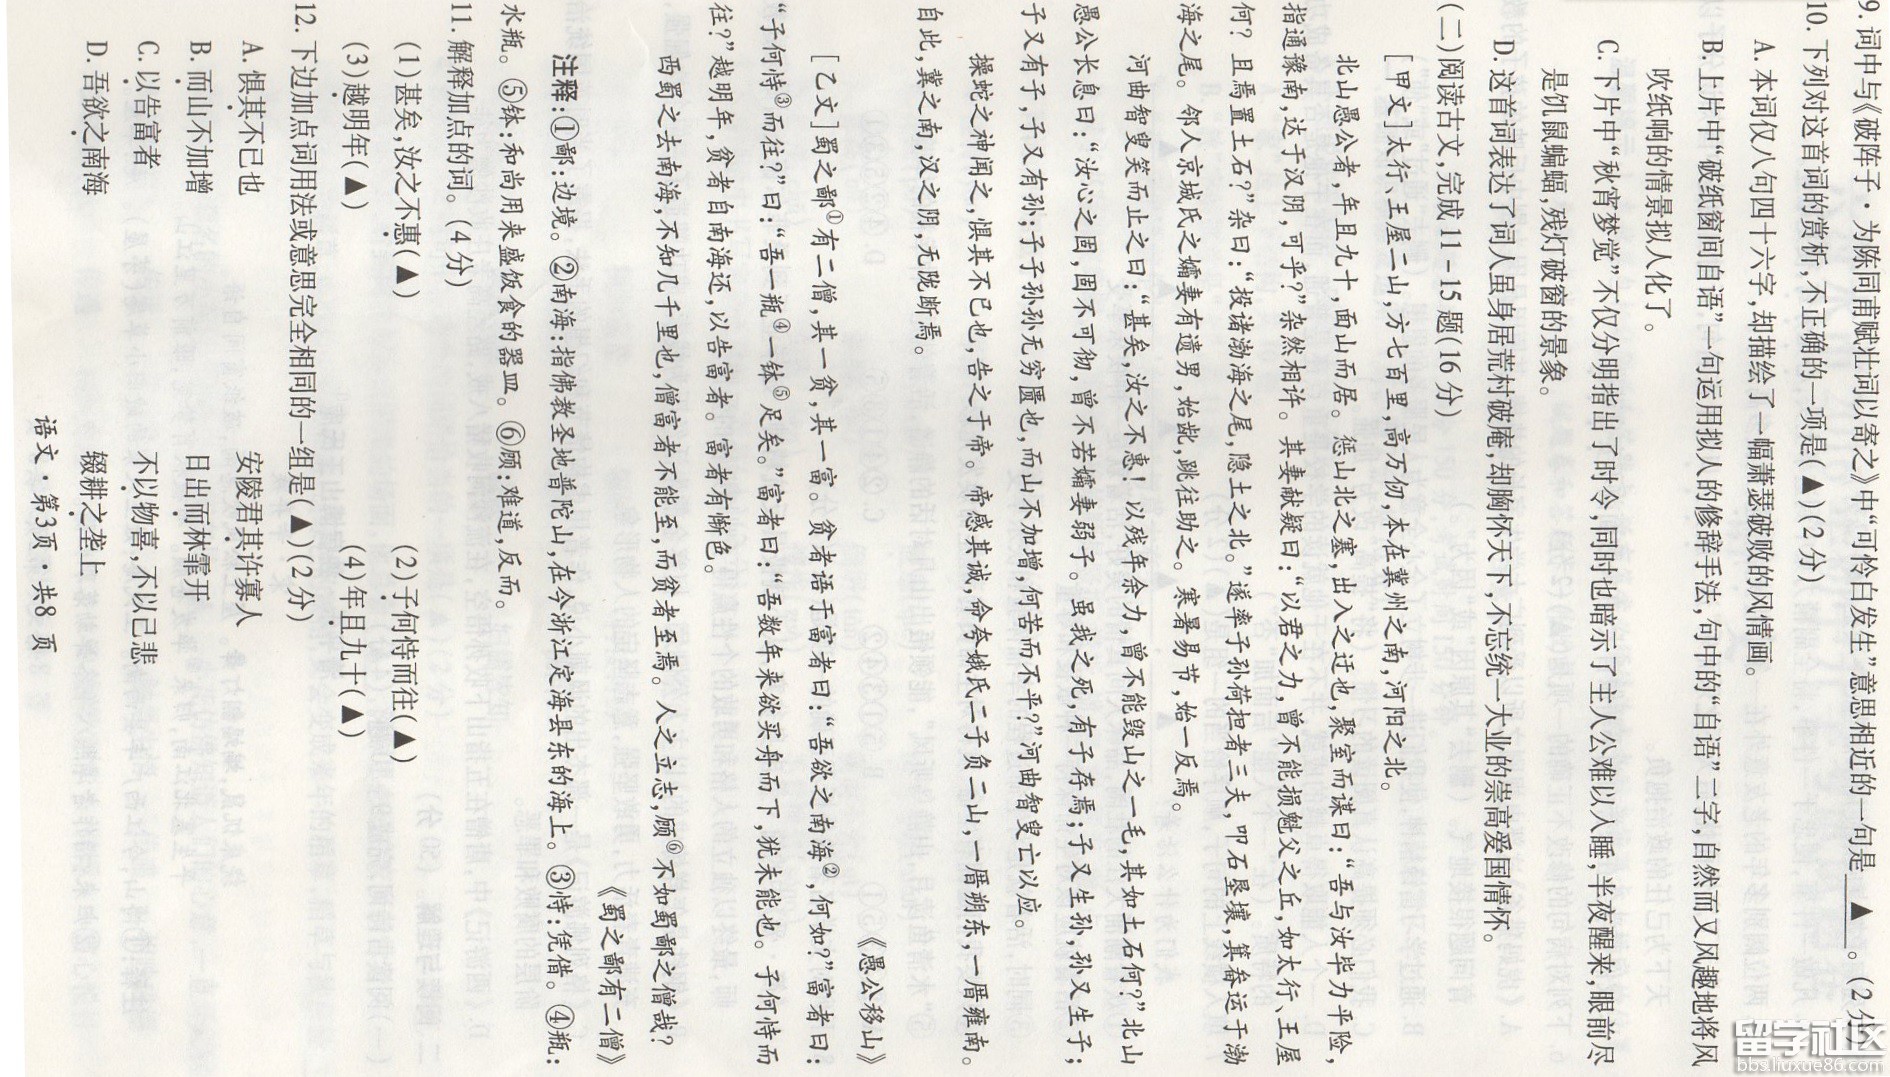 9. 词中与《破阵子·为陈同甫赋壮词以寄之》中“可怜白发生”意思相近的一句是 ▲ 。(2分)
10. 下列对这首词的赏析,不正确的一项是(▲)(2分)
A. 本词仅八句四十六字,却描绘了一幅萧瑟破败的风情画。
B. 上片中“破纸窗间自语”一句运用拟人的修辞手法,句中的“自语”二字,自然而又风趣地将风
吹纸响的情景拟人化了。
C. 下片中“秋宵梦觉”不仅分明指出了时令,同时也暗示了主人公难以入睡,半夜醒来,眼前尽
是饥鼠蝙蝠,残灯破窗的景象。
D. 这首词表达了词人虽身居荒村破庵,却胸怀天下,不忘统一大业的崇高爱国情怀。
(二)阅读古文,完成11-15题(16分)
[甲文]太行、王屋二山,方七百里,高万仞,本在冀州之南,河阳之北。
北山愚公者,年且九十,面山而居。惩山北之塞,出入之迂也,聚室而谋曰:“吾与汝毕力平险,
指通豫南,达于汉阴,可乎?”杂然相许。其妻献疑曰:“以君之力,曾不能损魁父之丘,如太行、王屋
何?且焉置土石?”杂曰:“投诸渤海之尾,隐土之北。”遂率子孙荷担者三夫,叩石垦壤,箕畚运于渤
海之尾。邻人京城氏之孀妻有遗男,始龀,跳往助之。寒暑易节,始一反焉。
河曲智叟笑而止之曰:“甚矣,汝之不惠!以残年余力,曾不能毁山之一毛,其如土石何?”北山
愚公长息曰:“汝心之固,固不可彻,曾不若孀妻弱子。虽我之死,有子存焉;子又生孙,孙又生子;
子又有子,子又有孙;子子孙孙无穷匮也,而山不加增,何苦而不平?”河曲智叟亡以应。
操蛇之神闻之,惧其不已也,告之于帝。帝感其诚,命夸娥氏二子负二山,一厝朔东,一厝雍南。
自此,冀之南,汉之阴,无陇断焉。
《愚公移山》
[乙文]蜀之鄙①有二僧,其一贫,其一富。贫者语于富者曰:“吾欲之南海②,何如?”富者曰:
“子何恃③而往?”曰:“吾一瓶④一钵⑤足矣。”富者曰:“吾数年来欲买舟而下,犹未能也。子何恃而
往?”越明年,贫者自南海还,以告富者。富者有惭色。
西蜀之去南海,不知几千里也,僧富者不能至,而贫者至焉。人之立志,顾⑥不如蜀鄙之僧哉?
《蜀之鄙有二僧》
注释:①鄙:边境。②南海:指佛教圣地普陀山,在今浙江定海县东的海上。③恃:凭借。④瓶:
水瓶。⑤钵:和尚用来盛饭食的器皿。⑥顾:难道,反而。
11. 解释加点的词。(4分)
(1)甚矣,汝之不惠(▲) (2)子何恃而往(▲)
(3)越明年(▲) (4)年且九十(▲)
12. 下边加点词用法或意思完全相同的一组是(▲)(2分)
A. 惧其不已也 安陵君其许寡人
B. 而山不加增 日出而林霏开
C. 以告富者 不以物喜,不以己悲
D. 吾欲之南海 辍耕之垄上
语文·第3页·共8页
留学社区
bbs.liuxue86.com